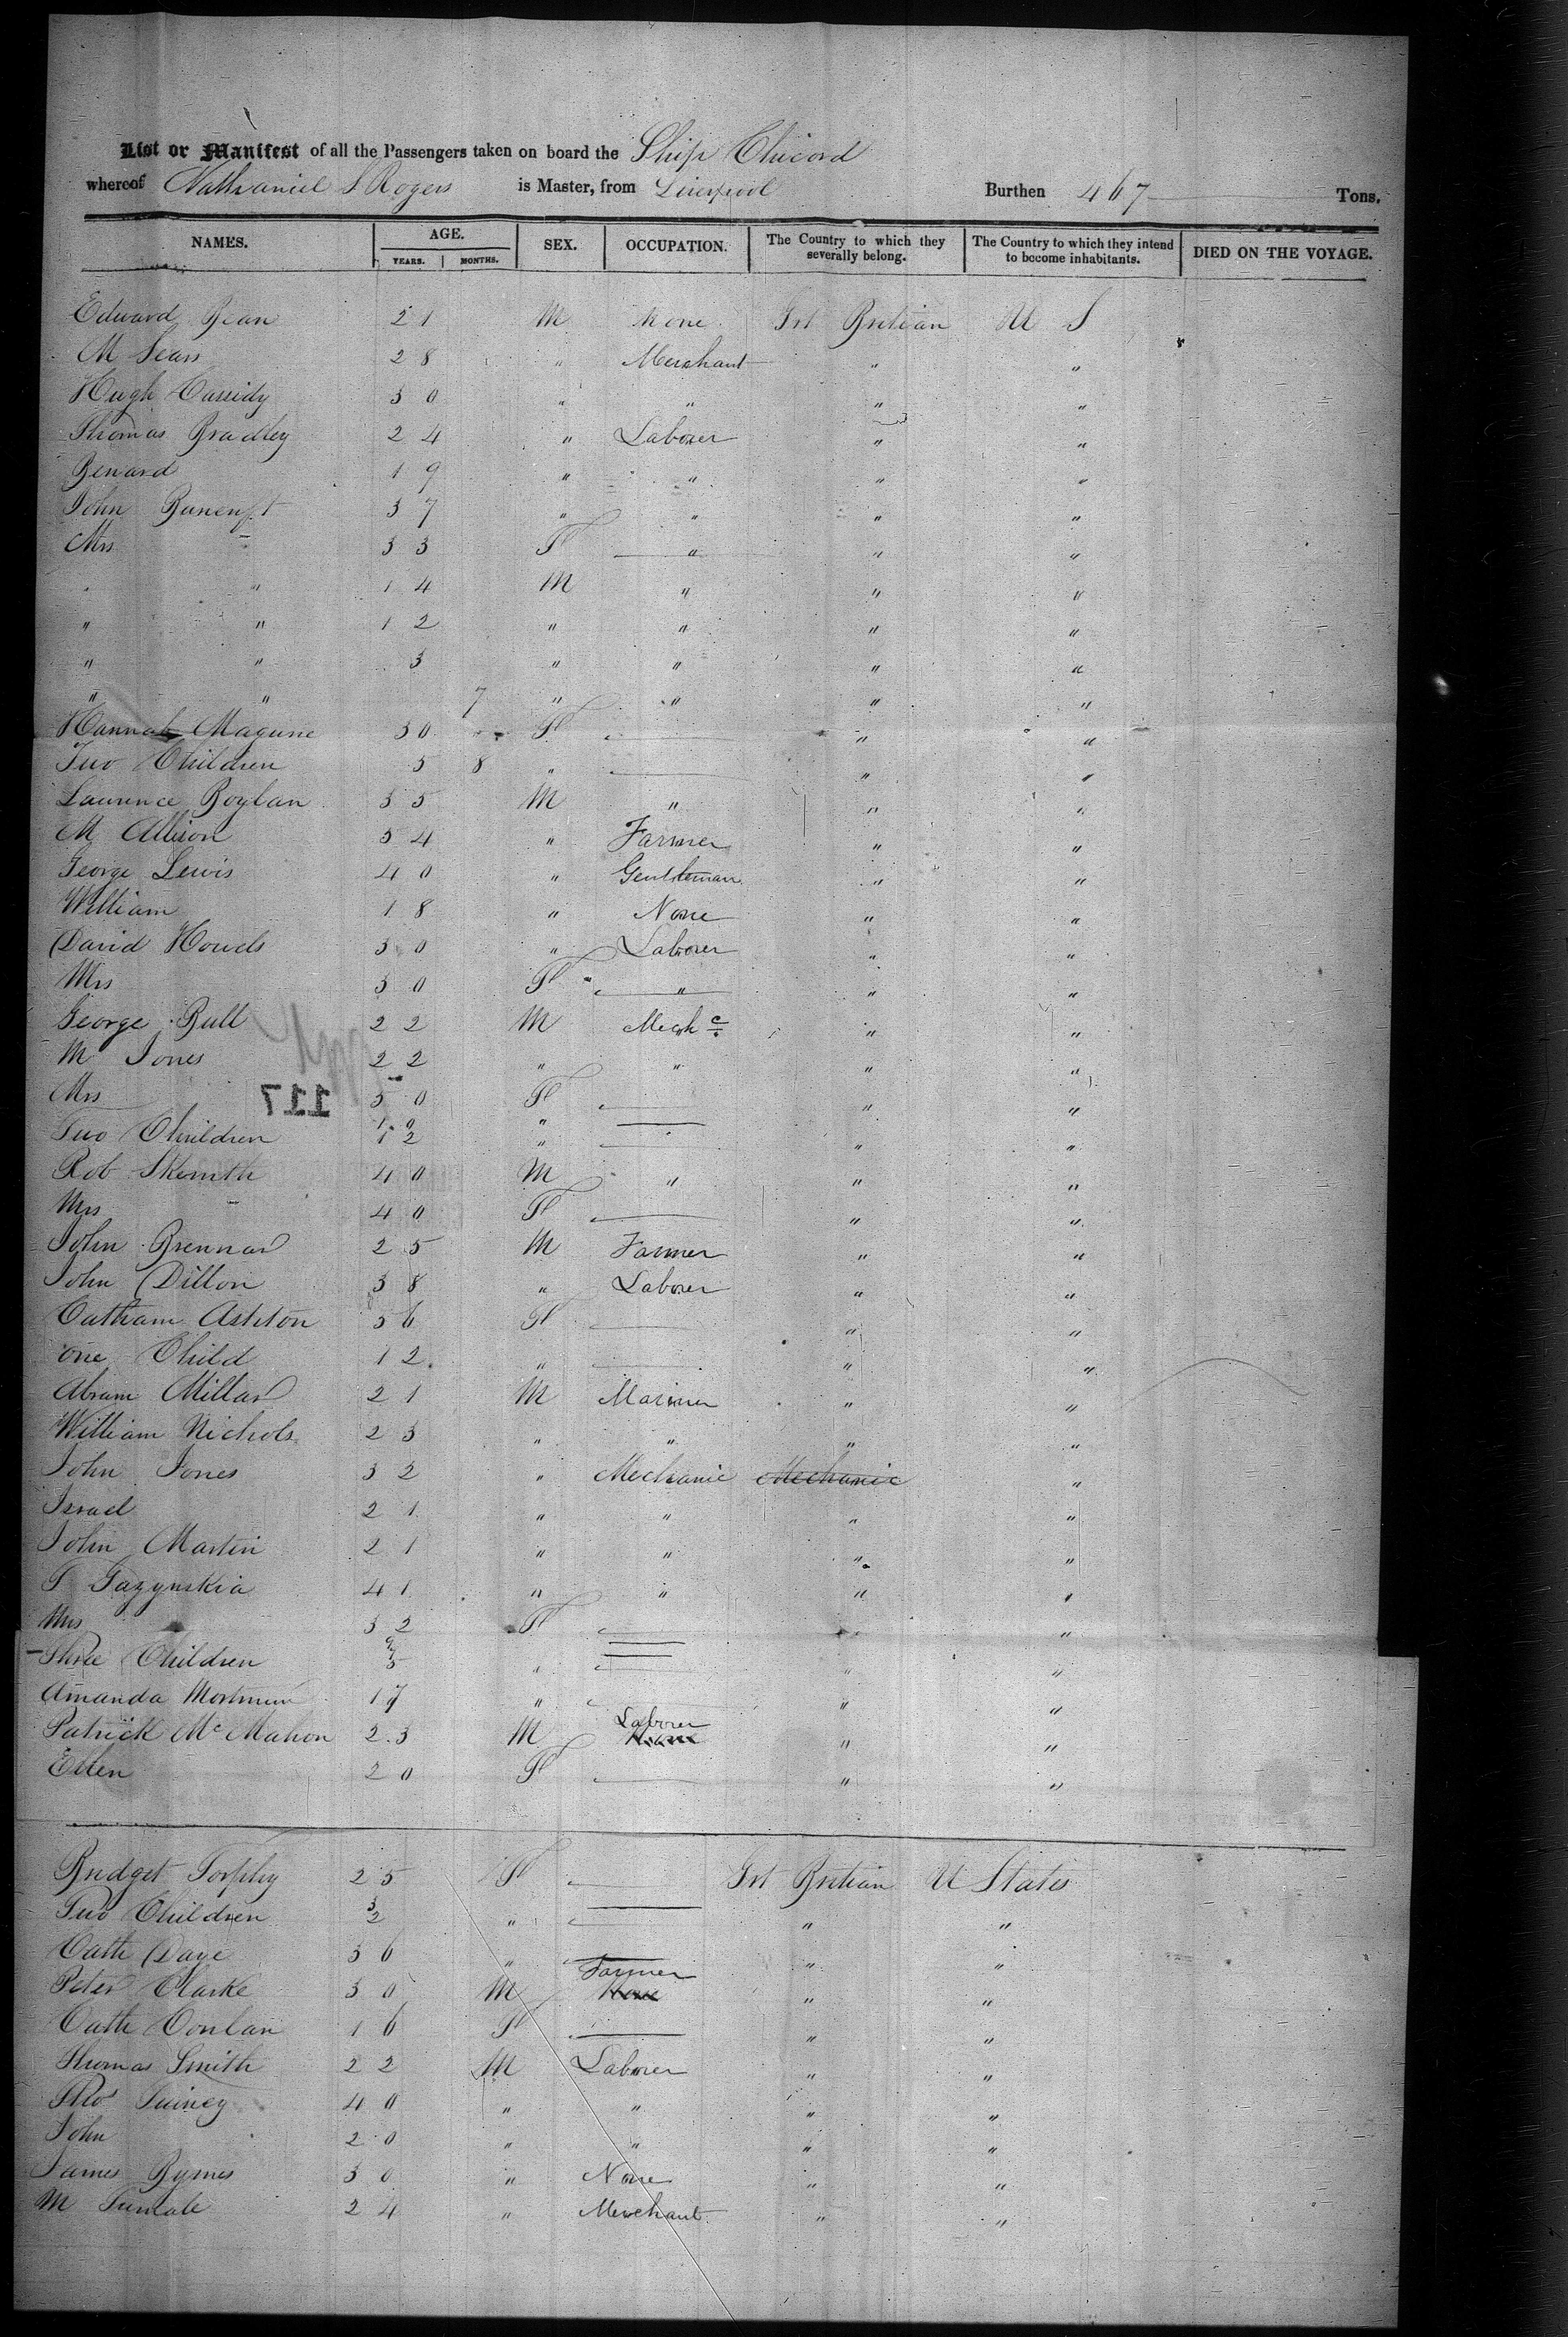 List or Manifest of all the Passengers taken on board the Ship Chicord
whereof Nathaniel S Rogers is Master, from Liverpool Burthen 467 Tons.
NAMES. AGE. SEX. OCCUPATION. The Country to which they severally belong. The Country to which they intend to become inhabitants. DIED ON THE VOYAGE.
YEARS. MONTHS.
Edward Bean 21 M None Grt Bretian U S
M Sears 28 " Merchant " "
Hugh Cassidy 30 " " " "
Thomas Bradley 24 " Laborer " "
Benard 19 " " " "
John 37 " " " "
Mrs " 33 F " " "
" " 14 M " " "
" " 12 " " " "
" " 3 " " " "
" " 7 " " " "
Hannah Magune 30 F " "
Two Children 5 8 " " "
Laurence Boylan 35 M " " "
M Allison 34 " Farmer " "
George Lewis 40 " Gentleman " "
William 18 " None " "
David Howels 30 " Laborer " "
Mrs 30 F " " "
George Bull 22 M Mech c " "
M Jones 22 " " " "
Mrs 50 F " "
117
Two Children 12 " " "
Rob Skemth 40 M " " "
Mrs " 40 F " "
John Brennan 25 M Farmer " "
John Dillon 38 " Laborer " "
Catham Ashton 36 F " "
one Child 12 " " "
Abram Millar 21 M Mariner " "
William Nichols 23 " " " "
John Jones 32 " Mechanic Mechanic "
Israel 21 " " " "
John Martin 21 " " " "
T Gazynskia 41 " " " "
Mrs 32 F " "
Three Children 9 7 5 " " "
Amanda 17 " " "
Patrick McMahon 23 M Laborer None " "
Ellen 20 F " "
Bridget Torphy 25 F Grt Bretian U States
Two Children 3 2 " " "
Cath Daye 36 " " "
Peter Clarke 30 M Farmer None " "
Cath Conlan 16 F " "
Thomas Smith 22 M Laborer " "
Thos Quincy 40 " " " "
John 20 " " " "
James Byrnes 30 " None " "
M 24 " Merchant " "